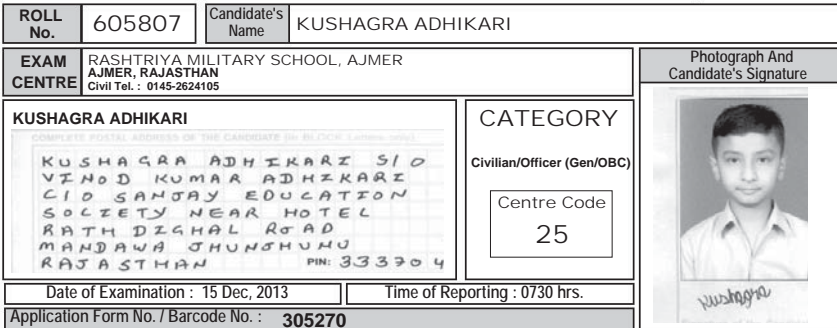 ROLL No. 605807 Candidate's Name KUSHAGRA ADHIKARI
EXAM CENTRE RASHTRIYA MILITARY SCHOOL, AJMER
AJMER, RAJASTHAN
Civil Tel. : 0145-2624105
Photograph And
Candidate's Signature
KUSHAGRA ADHIKARI
COMPLETE POSTAL ADDRESS OF THE CANDIDATE (in BLOCK Letters only)
KUSHAGRA ADHIKARI S/O
VINOD KUMAR ADHIKARI
C/O SANJAY EDUCATION
SOCIETY NEAR HOTEL
RATH DIGHAL ROAD
MANDAWA JHUNJHUNU
RAJASTHAN PIN: 333704
CATEGORY
Civilian/Officer (Gen/OBC)
Centre Code
25
Kushagra
Date of Examination : 15 Dec, 2013 Time of Reporting : 0730 hrs.
Application Form No. / Barcode No. : 305270